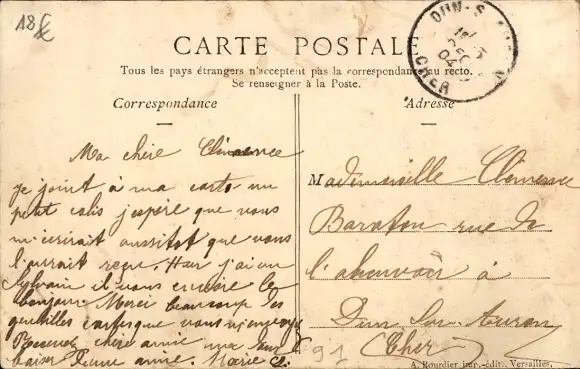 18 €
DUN-S
CHER
04
CARTE POSTALE
Tous les pays étrangers n'acceptent pas la correspondance au recto.
Se renseigner à la Poste.
Correspondance
Adresse
Ma chère Clémence
je joint à ma carte un
petit colis j'espère que vous
m'écrirait aussitot que vous
l'aurait reçu. Hier j'ai vu
Sylvain il vous envoie le
bonjour. Merci beaucoup les
que vous m'envoyez
Recevez chère amie un doux
baiser d'une amie. Marie C.
Mademoiselle Clémence
Baraton rue de
l'abreuvoir à
Dun sur Auron
Cher
91
A. Bourdier imp.-édit. Versailles.